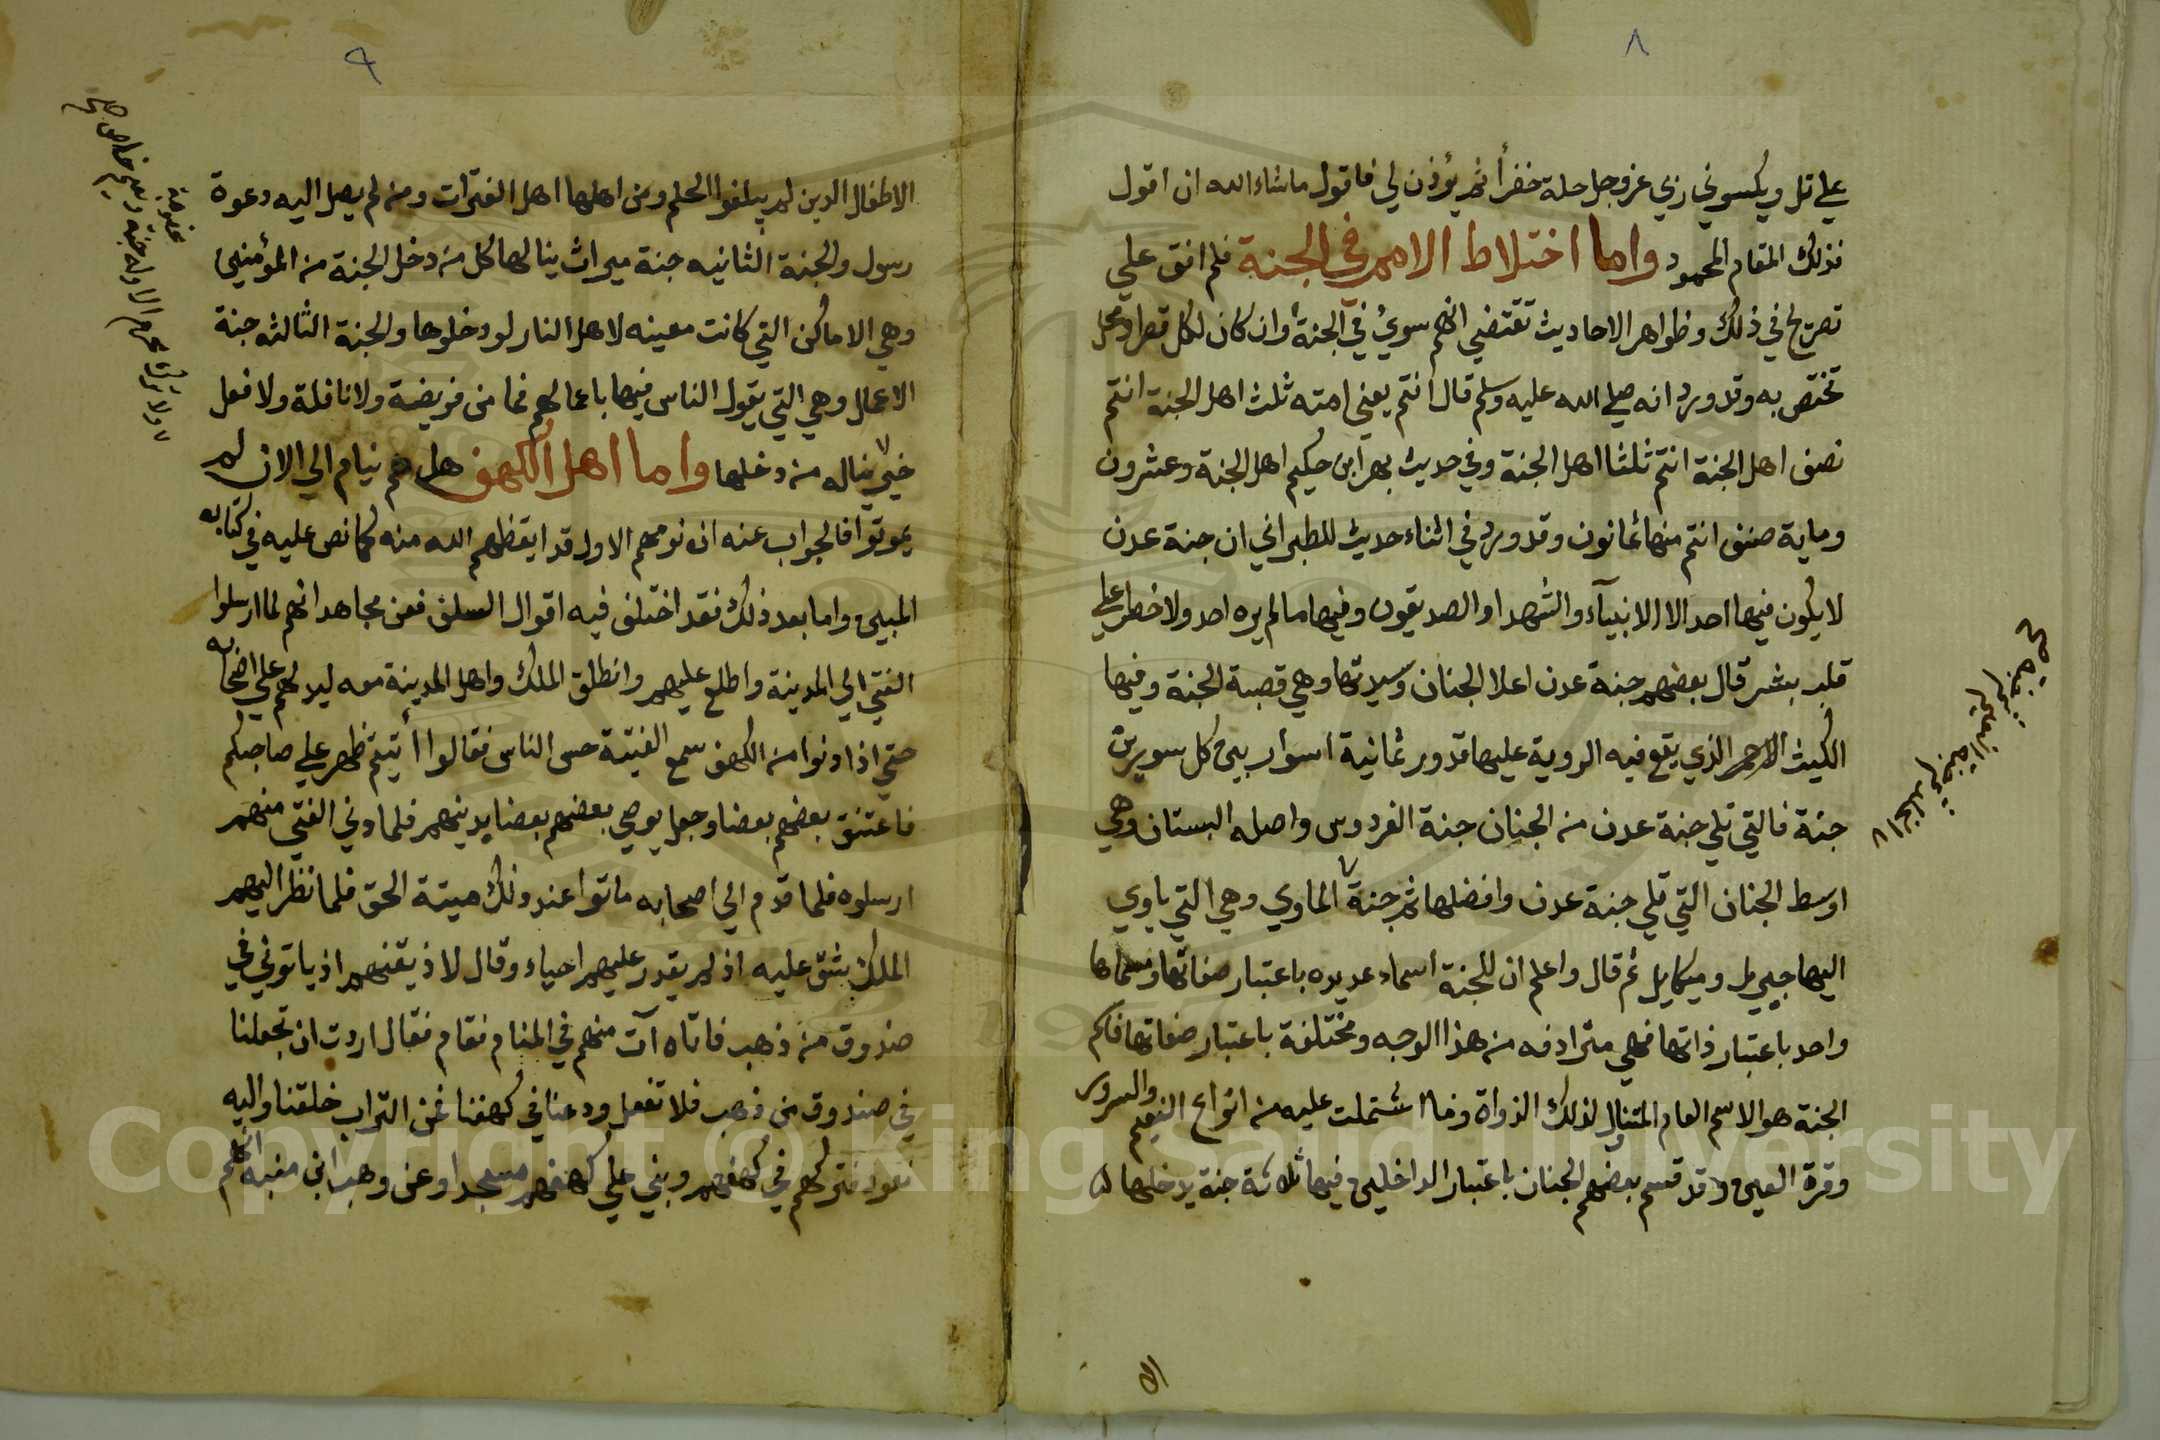 ٨
علي تل ويكسوني ربي عز وجل حلة خضرأ ثم يؤذن لي فاقول ماشاء الله ان اقول
فذلك المقام المحمود واما اختلاط الامم في الجنة فلم اقف علي
تصريح في ذلك وظواهر الاحاديث تقتضي انهم سوي في الجنة وان كان لكل قصر ومحل
تختص به وقد ورد انه صلي الله عليه وسلم قال انتم يعني امته ثلث اهل الجنة انتم
نصف اهل الجنة انتم ثلثا اهل الجنة وفي حديث بهر ابن حكيم اهل الجنة وعشرون
وماية صنف انتم منها ثمانون وقد ورد في اثناء حديث للطبراني ان جنة عدن
لا يكون فيها احد الا الانبيآء والشهدا والصديقون وفيها ما لم يره احد ولا خطر علي
قلب بشر قال بعضهم جنة عدن اعلا الجنان وسيدتها وهي قصبة الجنة وفيها
الكثيب الاحمر الذي يقع فيه الروية عليها تدور ثمانية اسوار بين كل سورين
جنة فالتي تلي جنة عدن من الجنان جنة الفردوس واصله البستان وهي
اوسط الجنان التي تلي جنة عدن وافضلها ثم جنة الماوي وهي التي ياوي
اليها جبريل وميكايل ثم قال واعلم ان للجنة اسماء عديده باعتبار صفاتها ومسماها
واحد باعتبار ذاتها فهي مترادفه من هذا الوجه ومختلفة باعتبار صفاتها فاسم
الجنة هو الاسم العام المتناول لذلك الذواة وما اشتملت عليه من انواع النعيم والسرور
وقرة العين وقد قسم بعضهم الجنان باعتبار الداخلين فيها ثلاثة جنة يدخلها
٩
الاطفال الدين لم يبلغوا الحلم ومن اهلها اهل الفترات ومن لم يصل اليه دعوة
رسول والجنة الثانيه جنة ميراث ينالها كل من دخل الجنة من المؤمنين
وهي الاماكن التي كانت معينه لاهل النار لو دخلوها والجنة الثالثه جنة
الاعمال وهي التي يقول الناس فيها باعمالهم فما من فريضة ولا نافلة ولا فعل
خير يناله من دخلها واما اهل الكهف هل هم نيام الي الان لم
يموتوا فالجواب عنه ان نومهم الاول قد ايقظهم الله منه كما نص عليه في كتابه
المبين واما بعد ذلك فقد اختلف فيه اقوال السلف فعن مجاهد انهم لما ارسلوا
الفتي الي المدينة واطلع عليهم وانطلق الملك واهل المدينة معه ليدلهم علي اصحابه
حتي اذا دنوا من الكهف سمع الفتية حس الناس فقالوا أتيتم ظهر علي صاحبكم
فاعتنق بعضهم بعضا وجعل يوصي بعضهم بعضا بدينهم فلما دني الفتي منهم
ارسلوه فلما قدم الي اصحابه ماتوا عند ذلك ميتة الحق فلما نظر اليهم
الملك شق عليه اذ لم يقدر عليهم احياء وقال لا ذيقنهم اذ ياتوني في
صندوق من ذهب فاتاه آت منهم في المنام فقام فقال اردت ان تجعلنا
في صندوق من ذهب فلا تفعل ودعنا في كهفنا فمن التراب خلقنا واليه
نعود فتركهم في كهفهم وبني علي كهفهم مسجدا وعن وهب ابن منبه